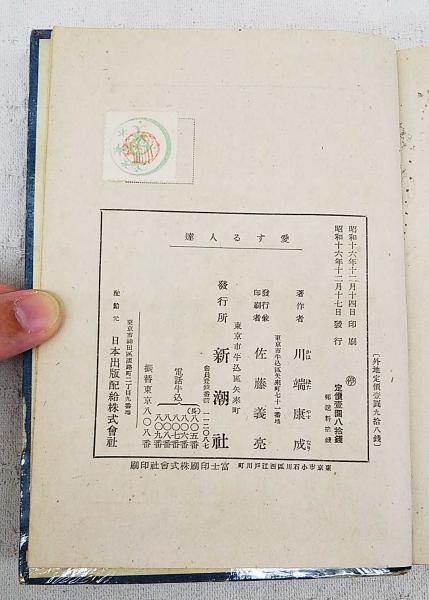 昭和十六年十二月十四日印刷
昭和十六年十二月十七日發行
〔外地定價壹圓九拾八錢〕
㊞ 定價壹圓八拾錢
郵送料拾錢
愛する人達
著作者 川端康成
かは ばた やす なり
東京市牛込區矢來町七十一番地
發行兼印刷者 佐藤義亮
東京市牛込區矢來町
發行所 新潮社
會員登錄番號 一一二〇八七
電話牛込
(長)八〇五番
八〇六番
八〇七番
八〇八番
八〇九番
振替東京八〇八番
東京市神田區淡路町二丁目九番地
配給元 日本出版配給株式會社
東京市小石川區西江戸川町
富士印刷株式會社印刷